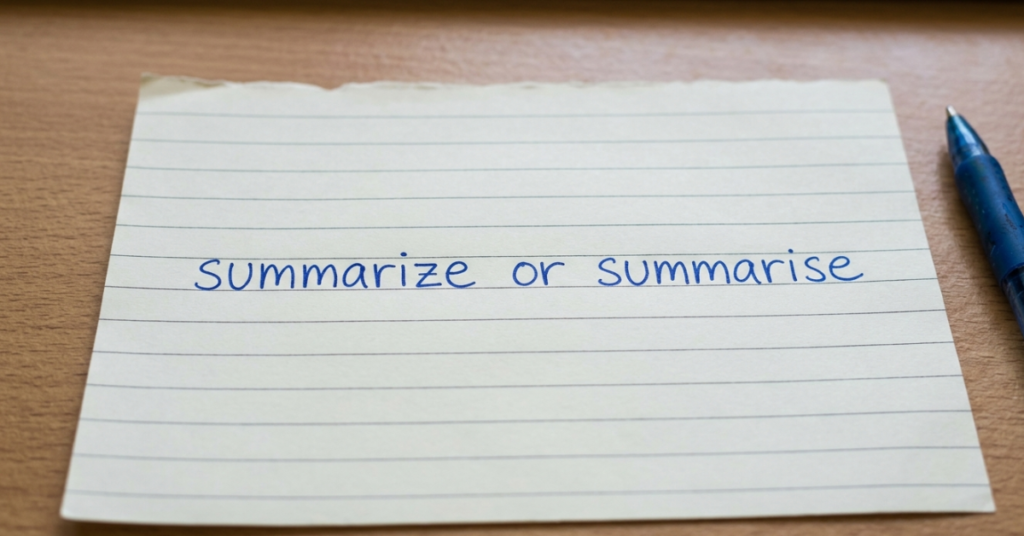 summarize or summarise